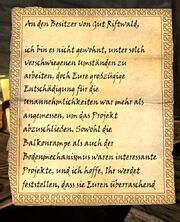 An den Besitzer von Gut Riftwald,
ich bin es nicht gewohnt, unter solch
verschwiegenen Umständen zu
arbeiten, doch Eure großzügige
Entschädigung für die
Unannehmlichkeiten war mehr als
angemessen, um das Projekt
abzuschließen. Sowohl die
Balkonrampe als auch der
Bodenmechanismus waren interessante
Projekte, und ich hoffe, Ihr werdet
feststellen, dass sie Euren überraschend